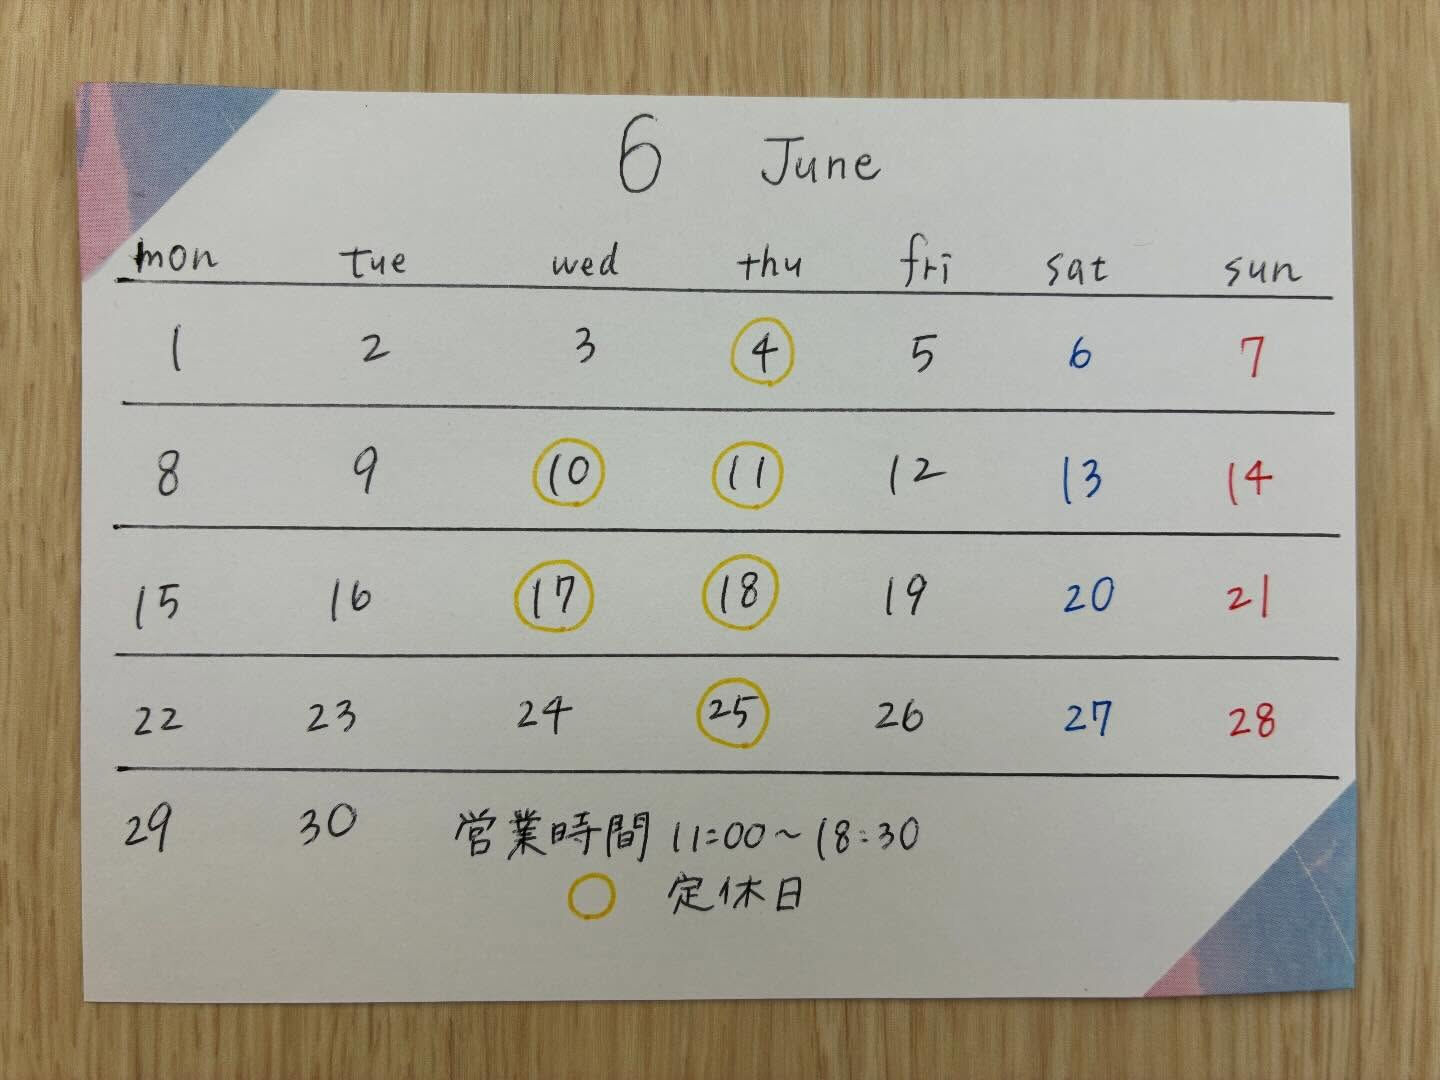 6 June
mon tue wed thu fri sat sun
1 2 3 4 5 6 7
8 9 10 11 12 13 14
15 16 17 18 19 20 21
22 23 24 25 26 27 28
29 30 営業時間 11:00~18:30
定休日